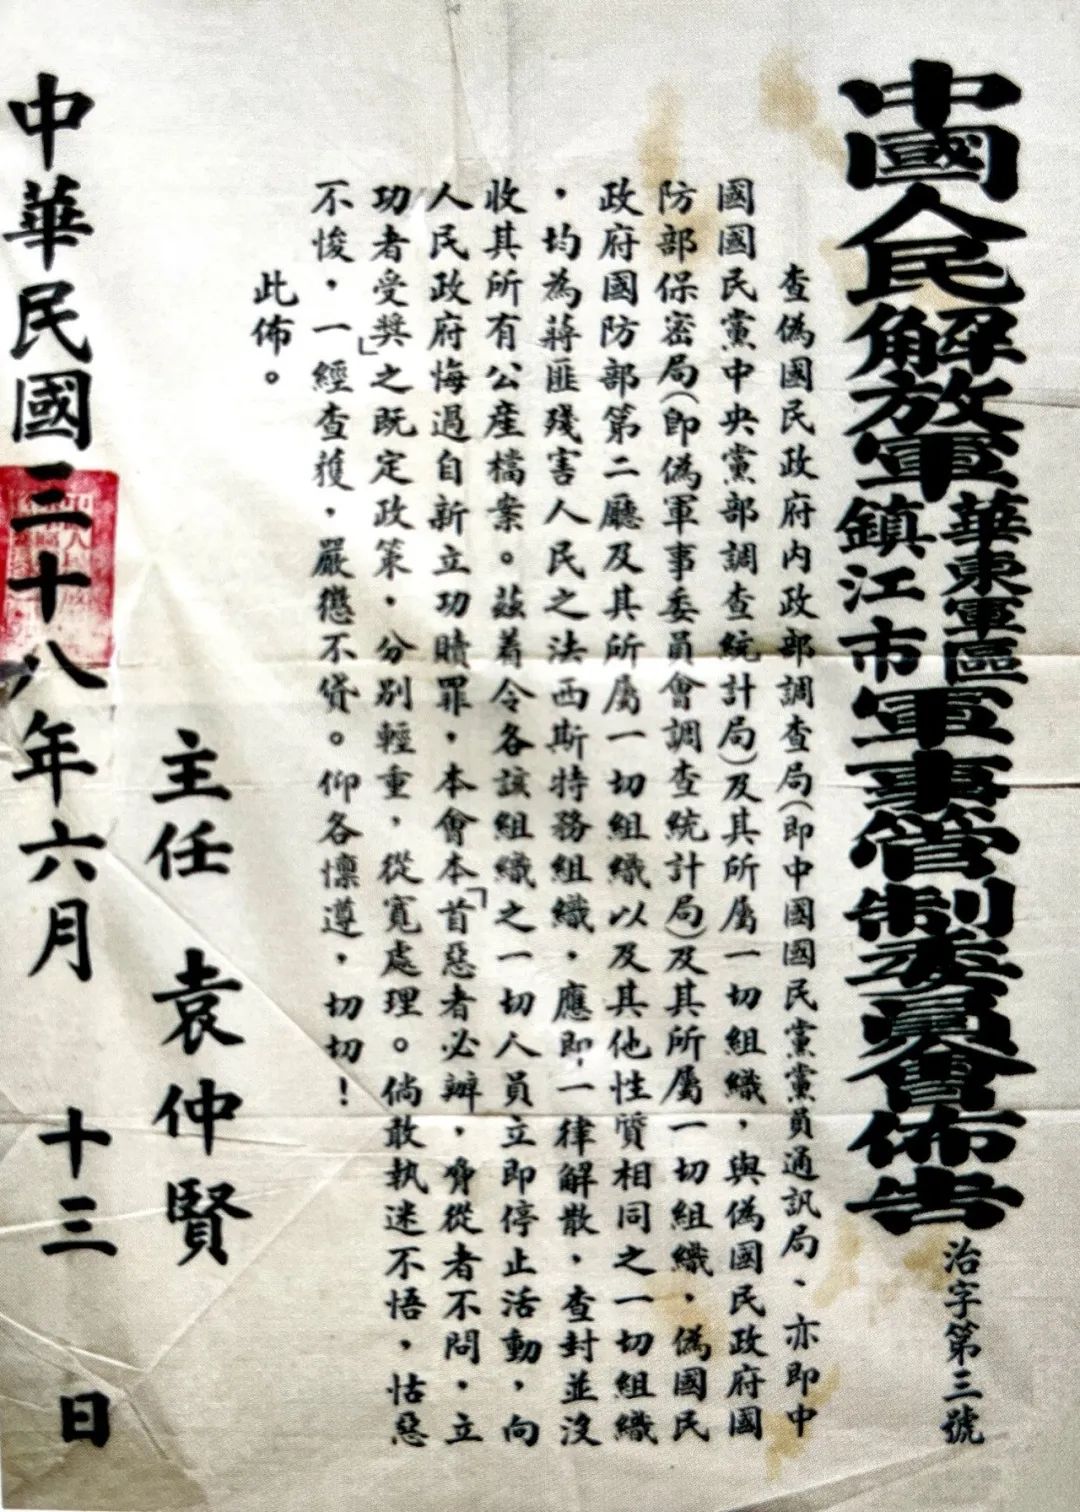 中國人民解放軍華東軍區鎮江市軍事管制委員會佈告
治字第三號
查偽國民政府內政部調查局(即中國國民黨黨員通訊局、亦即中
國國民黨中央黨部調查統計局)及其所屬一切組織,與偽國民政府國
防部保密局(即偽軍事委員會調查統計局)及其所屬一切組織,偽國民
政府國防部第二廳及其所屬一切組織以及其他性質相同之一切組織
,均為蔣匪殘害人民之法西斯特務組織,應即一律解散,查封並沒
收其所有公產檔案。茲着令各該組織之一切人員立即停止活動,向
人民政府悔過自新立功贖罪,本會本「首惡者必辦,脅從者不問,立
功者受獎」之既定政策,分別輕重,從寬處理。倘敢執迷不悟,怙惡
不悛,一經查獲,嚴懲不貸。仰各懍遵,切切!
此佈。
主任 袁仲賢
中華民國三十八年六月 十三 日